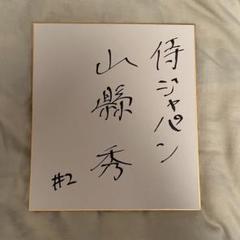 侍ジャパン
山縣秀
#2